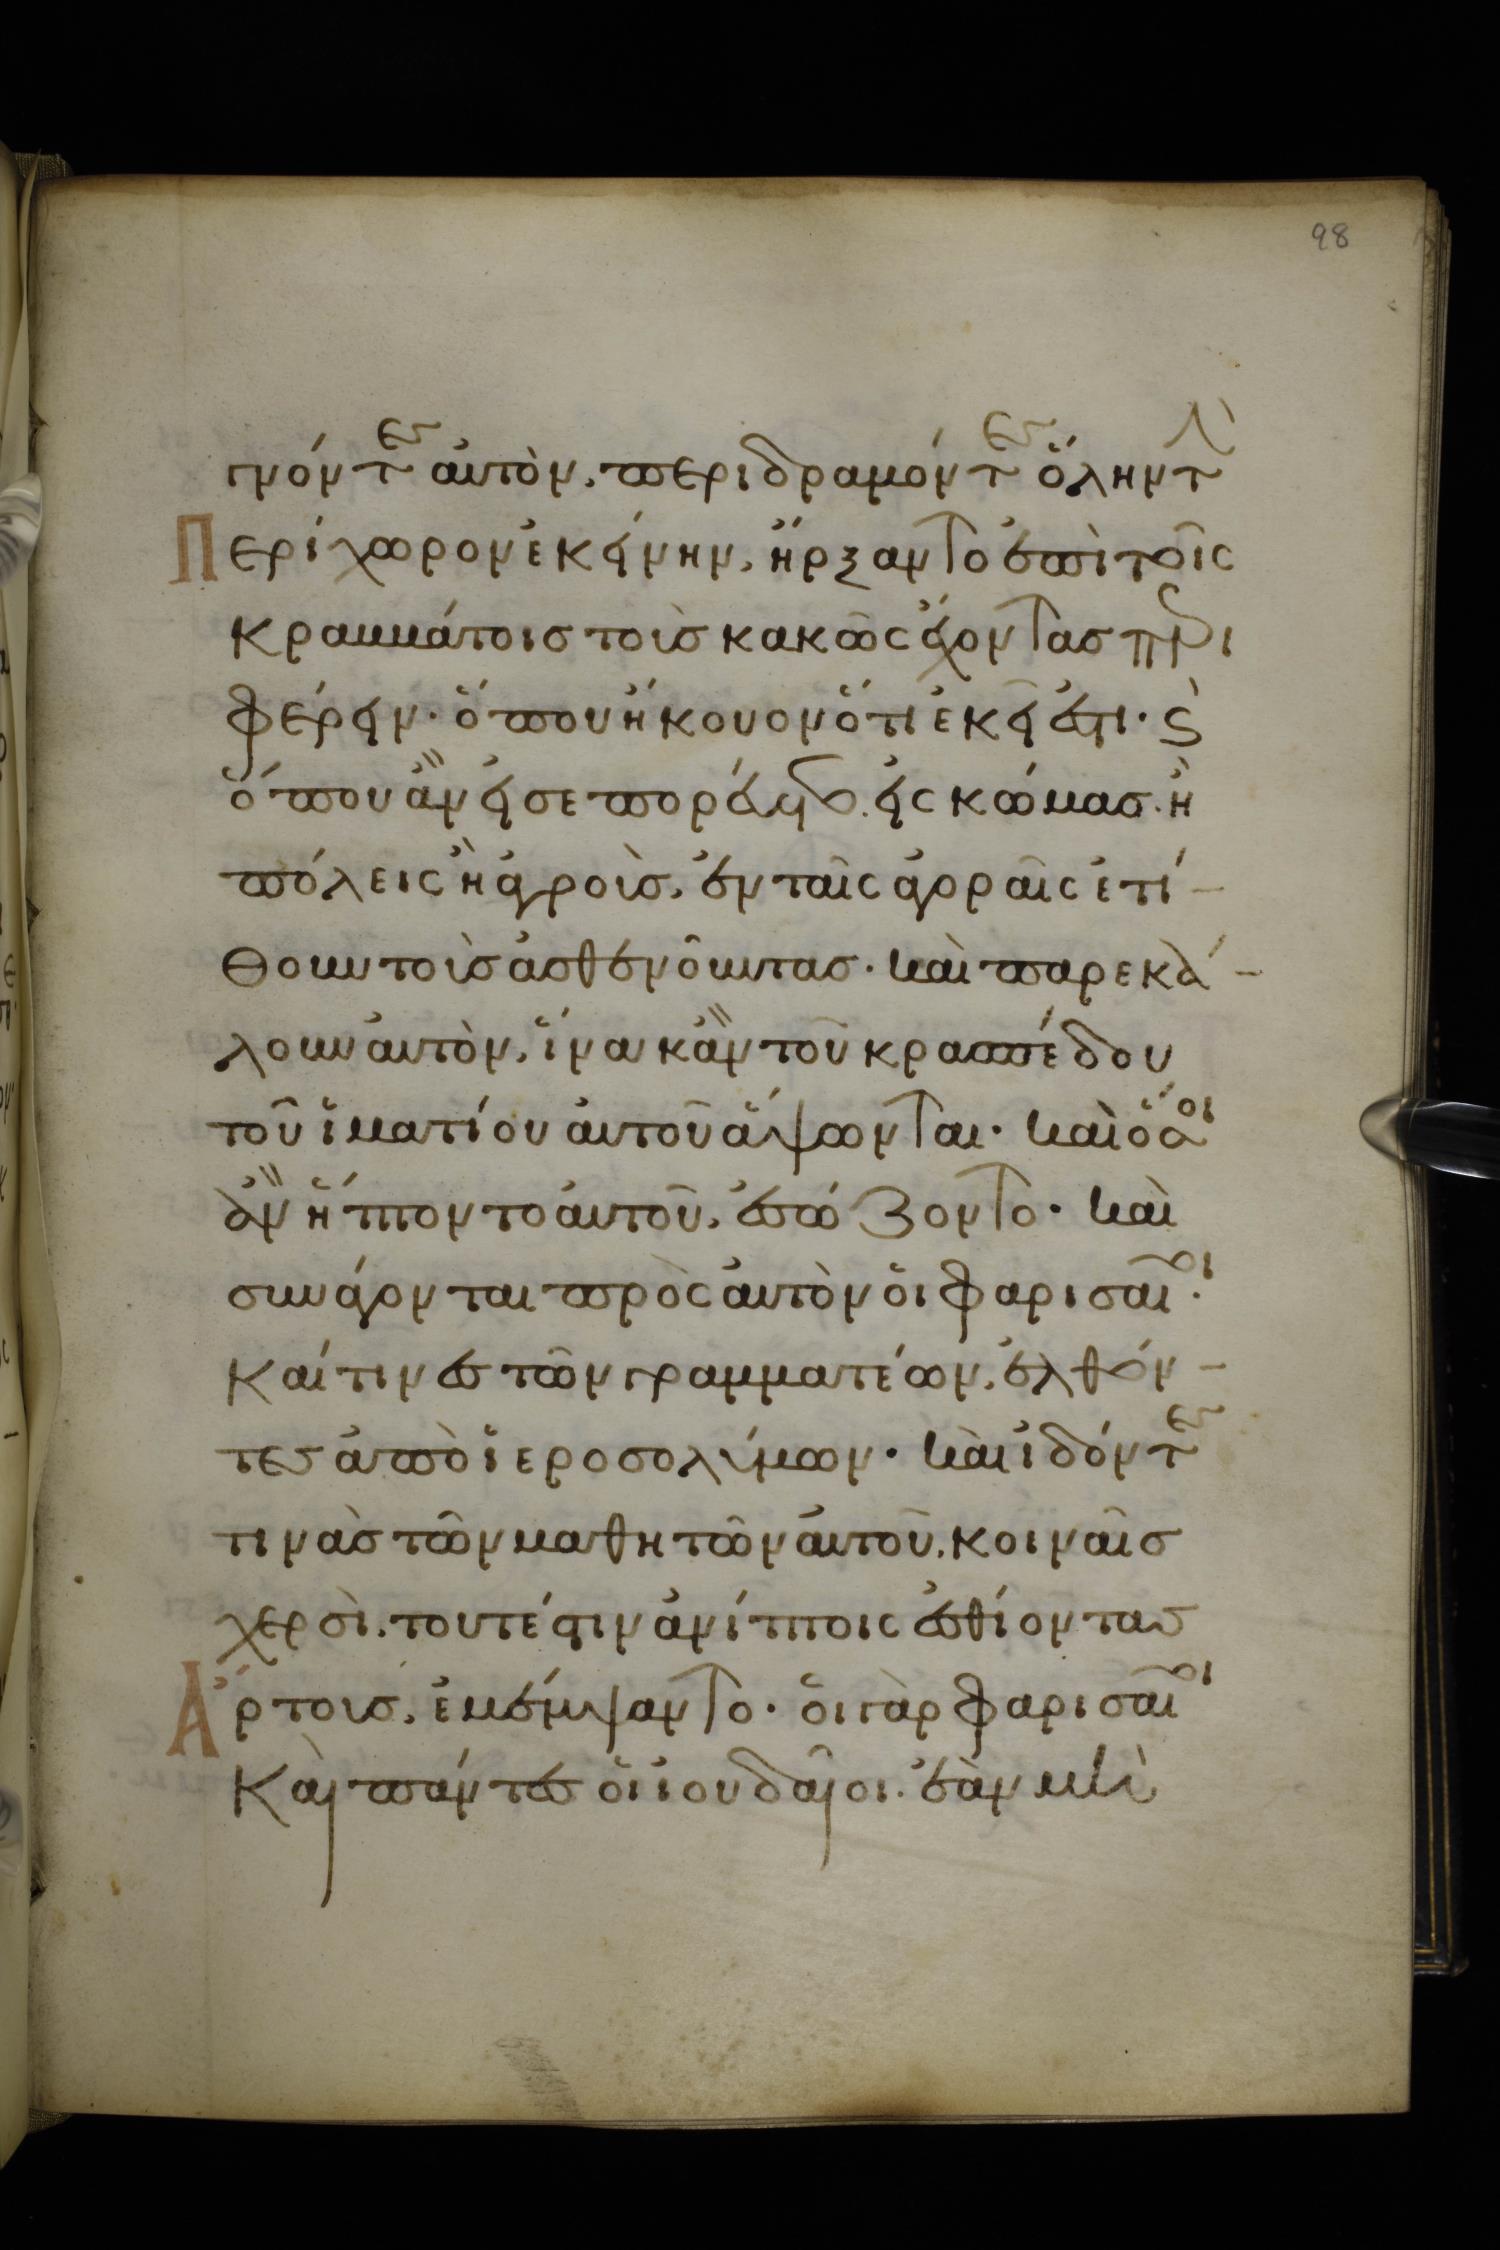 98
γνόντες αὐτὸν, περιδραμόντες ὅλην τὴν
Περίχωρον ἐκείνην, ἤρξαντο ἐπὶ τοῖς
κραμμάτοισ τοὺσ κακῶς ἔχοντασ περι
φέρειν· ὅπου ἤκουον ὅτι ἐκεῖ ἐστι· καὶ
ὅπου ἂν εἰσεπορεύετο. εἰς κώμασ. ἢ
πόλεις ἢ ἀγροὺσ, ἐν ταῖς ἀγοραῖς ἐτί-
θουν τοὺσ ἀσθενοῦντασ· καὶ παρεκά-
λουν αὐτὸν, ἵνα κἂν τοῦ κρασπέδου
τοῦ ἱματίου αὐτοῦ ἅψωνται· καὶ ὅσοι
ἂν ἥπτοντο αὐτοῦ, ἐσώζοντο· καὶ
συνάγονται πρὸς αὐτὸν οἱ φαρισαῖοι·
Καί τινεσ τῶν γραμματέων, ἐλθόν-
τεσ ἀπὸ ἱεροσολύμων· καὶ ἰδόντες
τινὰσ τῶν μαθητῶν αὐτοῦ, κοιναῖσ
χερσὶ. τουτέστιν ἀνίπτοις ἐσθίοντασ
Ἄρτουσ, ἐμέμψαντο· οἱ γὰρ φαρισαῖοι
Καὶ πάντεσ οἱ ἰουδαῖοι. ἐὰν μὴ